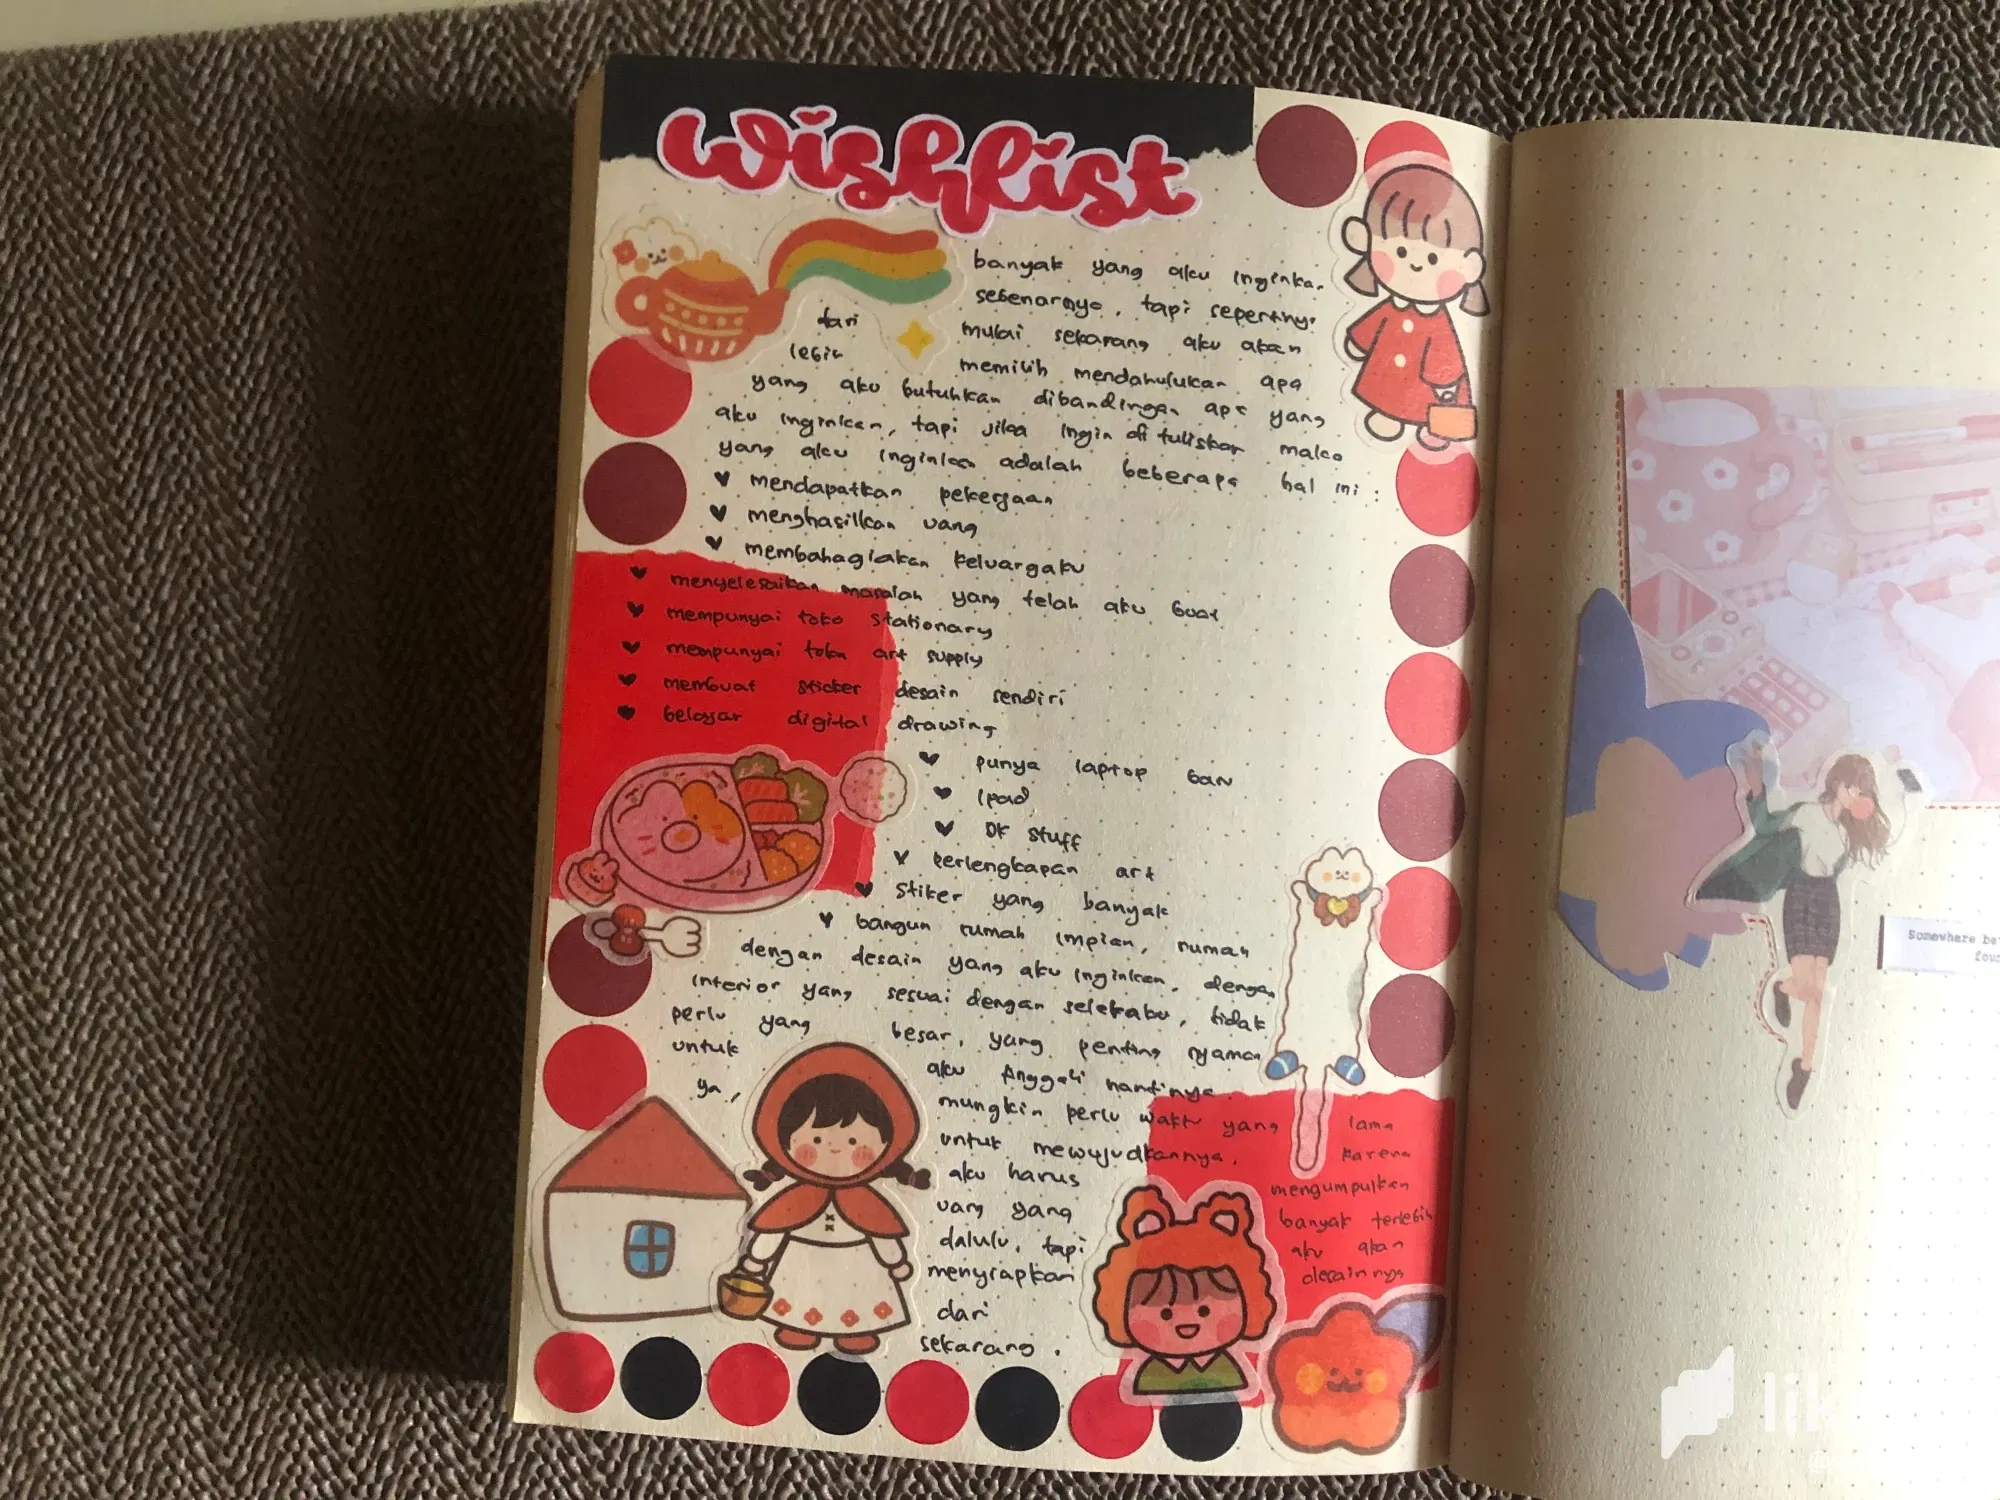 wishlist
banyak yang aku inginka
sebenarnya, tapi sepertiny
dari mulai sekarang aku akan
lebih memilih mendahulukan apa
yang aku butuhkan dibandingan apa yang
aku inginkan, tapi jika ingin di tuliskan maka
yang aku inginkan adalah beberapa hal ini :
♥ mendapatkan pekerjaan
♥ menghasilkan uang
♥ membahagiakan keluargaku
♥ menyelesaikan masalah yang telah aku buat
♥ mempunyai toko stationary
♥ mempunyai toko art supply
♥ membuat sticker desain sendiri
♥ belajar digital drawing
♥ punya laptop baru
♥ Ipad
♥ DK stuff
♥ perlengkapan art
♥ stiker yang banyak
♥ bangun rumah impian, rumah
dengan desain yang aku inginkan, dengan
interior yang sesuai dengan seleraku, tidak
perlu yang besar, yang penting nyaman
untuk aku tinggali nantinya
ya, mungkin perlu waktu yang lama
untuk mewujudkannya, karena
aku harus mengumpulkan
uang yang banyak terlebih
dalulu, tapi aku akan
menyiapkan
dari
sekarang.
Somewhere be
four
lik